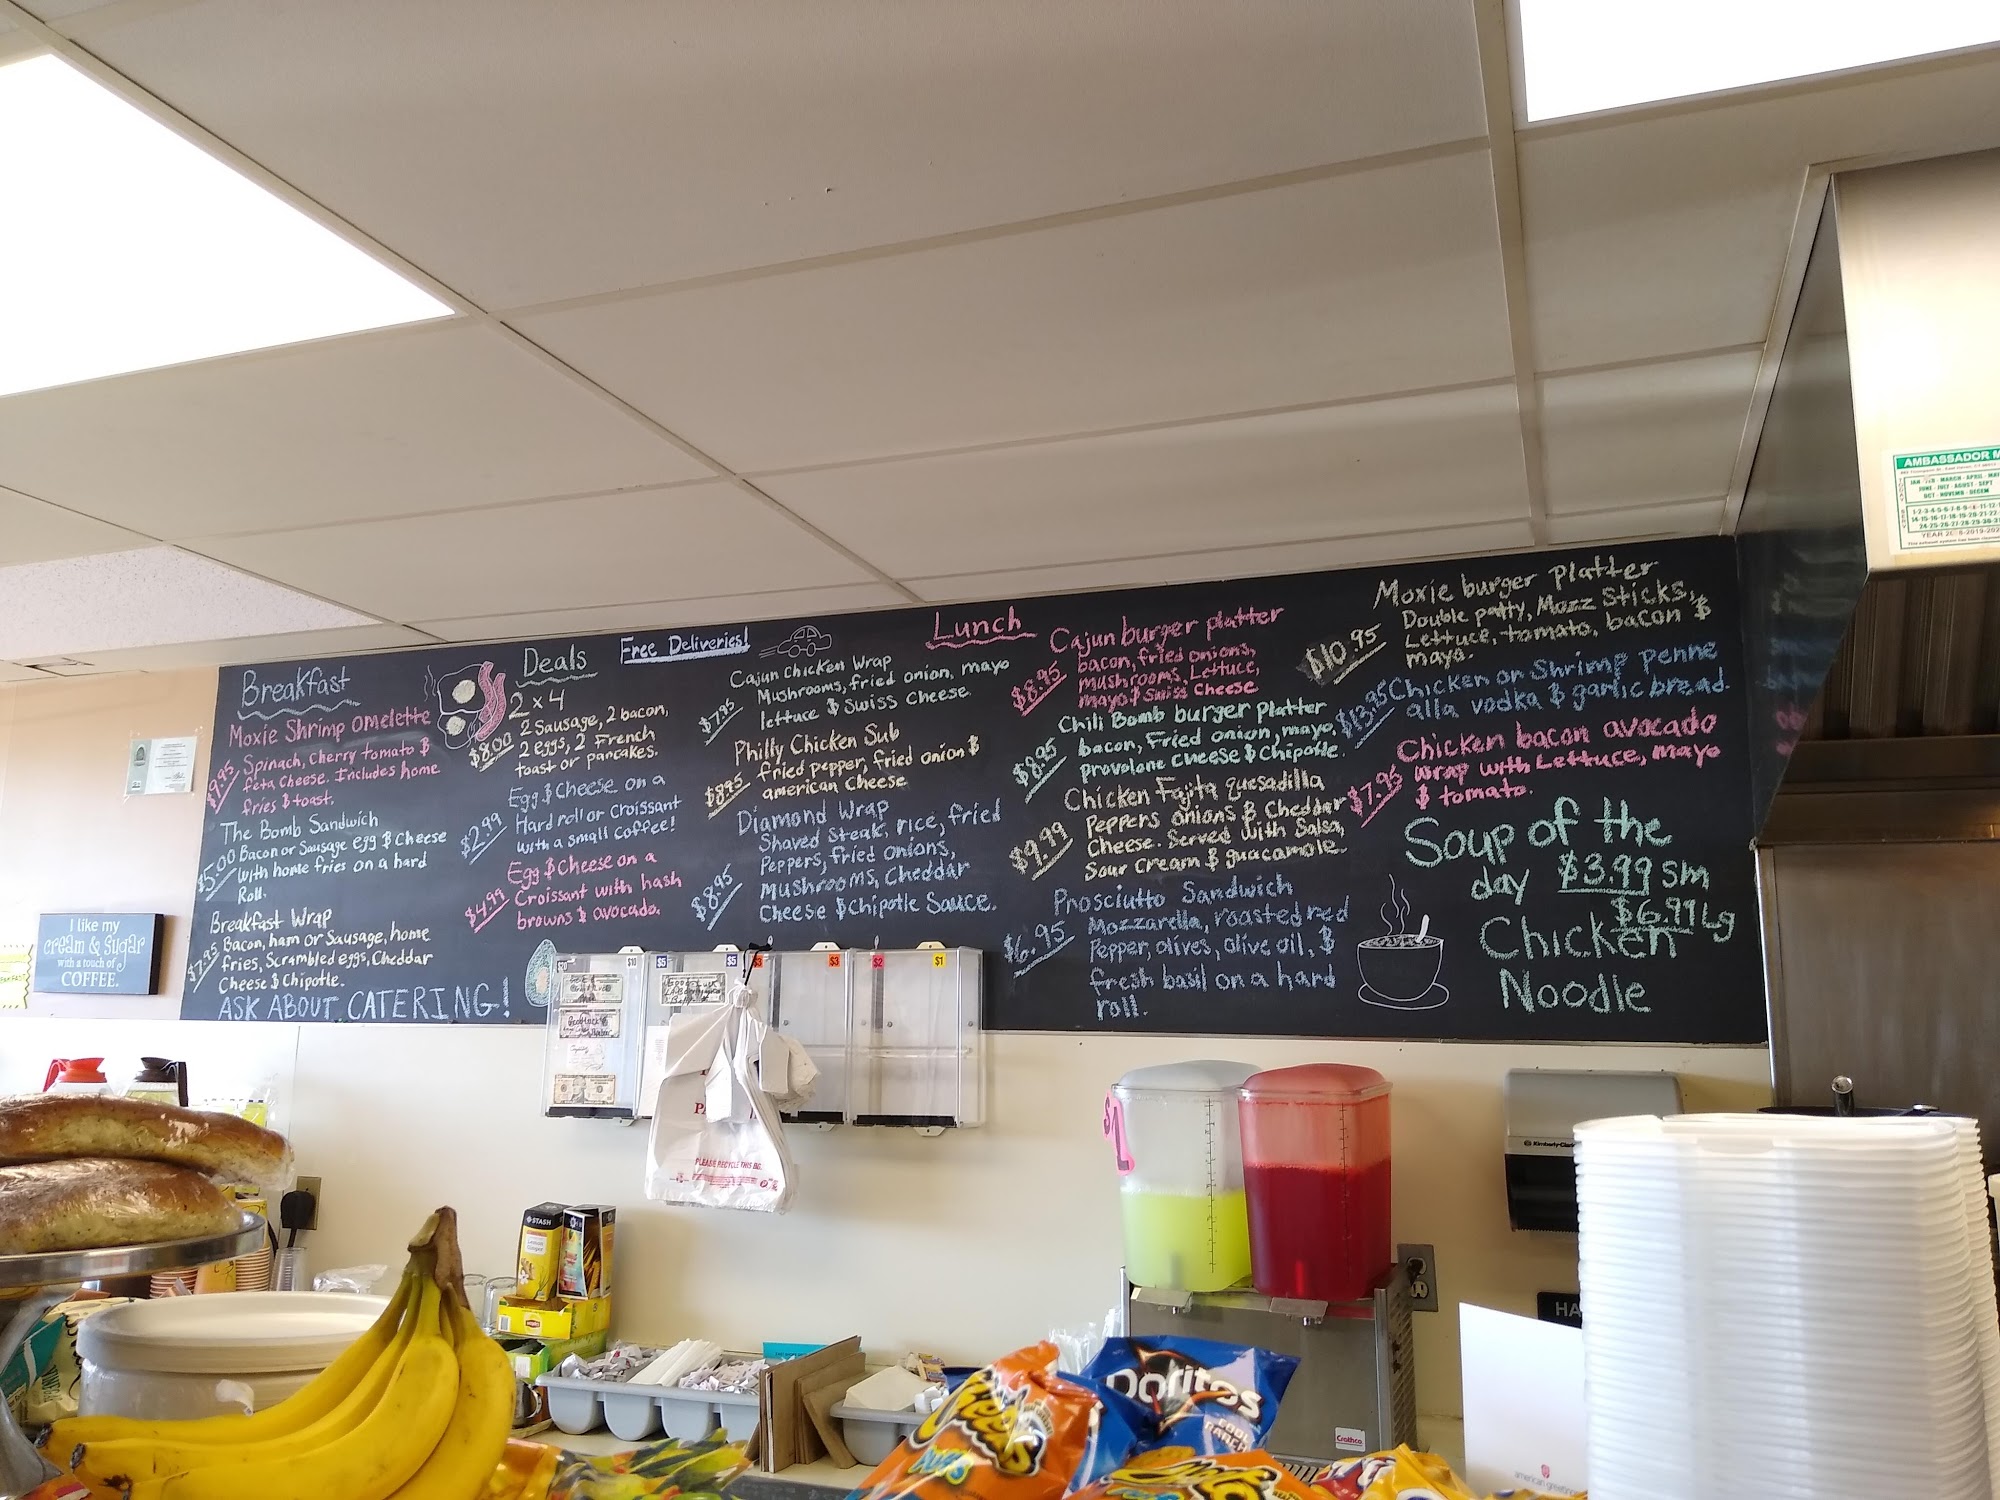 Breakfast
Moxie Shrimp omelette
$9.95
Spinach, cherry tomato &
feta cheese. Includes home
fries & toast.
The Bomb Sandwich
$5.00
Bacon or Sausage egg & Cheese
with home fries on a hard
Roll.
Breakfast Wrap
$7.95
Bacon, ham or Sausage, home
fries, Scrambled eggs, Cheddar
Cheese & Chipotle.
ASK ABOUT CATERING!
Deals
2 x 4
$8.00
2 Sausage, 2 bacon,
2 eggs, 2 French
toast or pancakes.
Egg & Cheese on a
$2.99
Hard roll or Croissant
with a small coffee!
Egg & Cheese on a
$4.99
Croissant with hash
browns & avocado.
Free Deliveries!
Lunch
Cajun Chicken Wrap
$7.95
Mushrooms, fried onion, mayo
lettuce & Swiss Cheese
Philly Chicken Sub
$8.95
fried pepper, fried onion &
american Cheese
Diamond Wrap
$8.95
Shaved Steak, rice, fried
Peppers, fried onions,
mushrooms, Cheddar
Cheese & Chipotle Sauce.
Cajun burger platter
$8.95
bacon, fried onions,
mushrooms, Lettuce,
mayo & Swiss Cheese
Chili Bomb burger Platter
$8.95
bacon, Fried onion, mayo,
provolone cheese & Chipotle.
Chicken Fajita quesadilla
$9.99
Peppers onions & Cheddar
Cheese. Served with Salsa,
Sour Cream & guacamole.
Prosciutto Sandwich
$6.95
Mozzarella, roasted red
Pepper, olives, olive oil, &
fresh basil on a hard
roll.
Moxie burger platter
$10.95
Double patty, Mozz Sticks,
Lettuce, tomato, bacon &
mayo.
$13.95
Chicken or Shrimp Penne
alla vodka & garlic bread.
Chicken bacon avocado
$7.95
wrap with Lettuce, mayo
& tomato.
Soup of the
day $3.99 sm
$6.99 Lg
Chicken
Noodle
I like my
cream & sugar
with a touch of
COFFEE.
AMBASSADOR
$10
$5
$5
$3
$3
$2
$1
PLEASE RECYCLE THIS BAG
$1
STASH
Kimberly-Clark
HA
Doritos
COOL
RANCH
Cheetos
Puffs
Crathco
american greetings